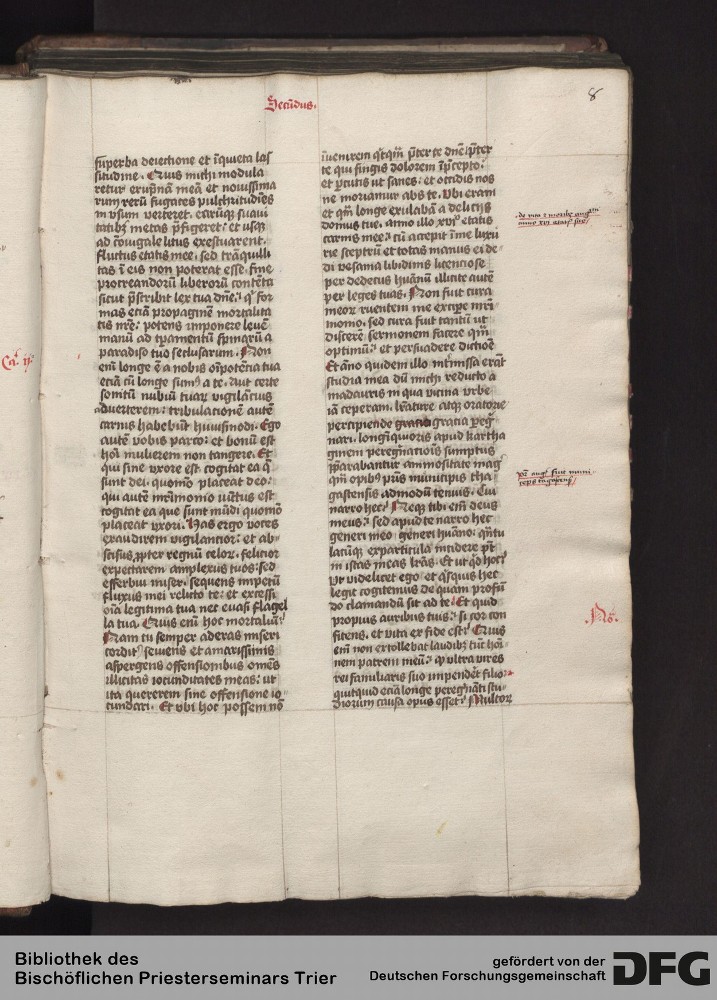 Secūdus.
8
superba deiectione et īquieta las
situdine. Quis michi modula
retur erūpnā meā et nouissima
rum rerū fugaces pulchritudīes
in vsum verteret. earūqȝ suaui
tatibȝ metas p̄figeret: et usqȝ
ad cōiugale litus exestuarent
fluctus etatis mee. sed trāquilli
tas ī eis non poterat esse. fine
procreandorū liberorū contēta
sicut p̄scribit lex tua dn̄e: q for
mas eciā propaginē mortalita
tis nr̄e: potens imponere leuē
manū ad tp̄amentū spinarū a
paradiso tuo seclusarum. Non
eīm longe ē a nobis oīpotēcia tua
eciā cū longe sumꝰ a te. Aut certe
sonitū nubiū tuarꝝ vigilācius
aduerterem: tribulationē autē
carnis habebūt huiusmodi. Ego
autē vobis parco: et bonū est
hoī mulierem non tangere. Et
qui sine vxore est cogitat ea q̄
sunt dei. quomō placeat deo:
qui autē mr̄imonio iūctus est
cogitat ea que sunt mūdi quomō
placeat vxori. Has ergo voces
exaudirem vigilantior: et ab
scisus ꝓpter regnū celorꝝ. felicior
expectarem amplexus tuos: sed
efferbui miser. sequens impetū
fluxus mei relicto te: et excessi
oīa legitima tua nec euasi flagel
la tua. Quis eīm hoc mortaliū?
Nam tu semper aderas miseri
corditer seuiens et amarissimis
aspergens offensionibus omēs
illicitas iocunditates meas: ut
ita quererem sine offensione io
cundari. Et vbi hoc possem nō
īuenirem q̄cq̄ p̄ter te dn̄e: p̄ter
te qui fingis dolorem ī p̄cepto:
et ꝑcutis ut sanes: et occidis nos
ne moriamur abs te. Vbi eram
et qm̄ longe exulabā a delicijs
domus tue. anno illo xvjº etatis
carnis mee: cū accepit ī me luxu
rie sceptrū et totas manus ei de
di vesania libidinis licenciose
per dedecus hūanū illicite autē
per leges tuas. Non fuit cura
meorꝝ ruentem me excipe mr̄i
monio. sed cura fuit tantū ut
discerē sermonem facere qm̄
optimū: et persuadere dictiōe
Et āno quidem illo int̄missa erāt
studia mea dū michi reducto a
madauris in qua vicina vrbe
iā ceperam. lr̄ature atqȝ oratorie
percipiende gracia pegͥ
nari. longīquioris apud kartha
ginem peregͥnacōis sumptus
p̄parabantur animositate mag
qm̄ opibȝ pr̄is municipis tha
gastensis admodū tenuis. Cui
narro hec? Neqȝ tibi eīm deus
meus: sed apud te narro hec
generi meo generi hūano. qn̄tu
lacūqȝ ex particula incidere pt̄
in istas meas lr̄as. Et ut qͥd hoc?
Vt videlicet ego et qͥsquis hec
legit cogitemus de quam profū
do clamandū sit ad te? Et quid
propius auribus tuis: si cor con
fitens. et vita ex fide est? Quis
eīm non extollebat laudibȝ tūc hoī
nem patrem meū: q ultra vires
rei familiaris sue impenderet filio:
quicquid eciā longe peregͥnāti stu
diorum causa opus esset? Multorꝝ
Ca. ij.
anno xvj etatis sue
pr̄ aug. fuit muni
ceps tagasteñ
.Nō.
Bibliothek des
Bischöflichen Priesterseminars Trier
gefördert von der
Deutschen Forschungsgemeinschaft
DFG